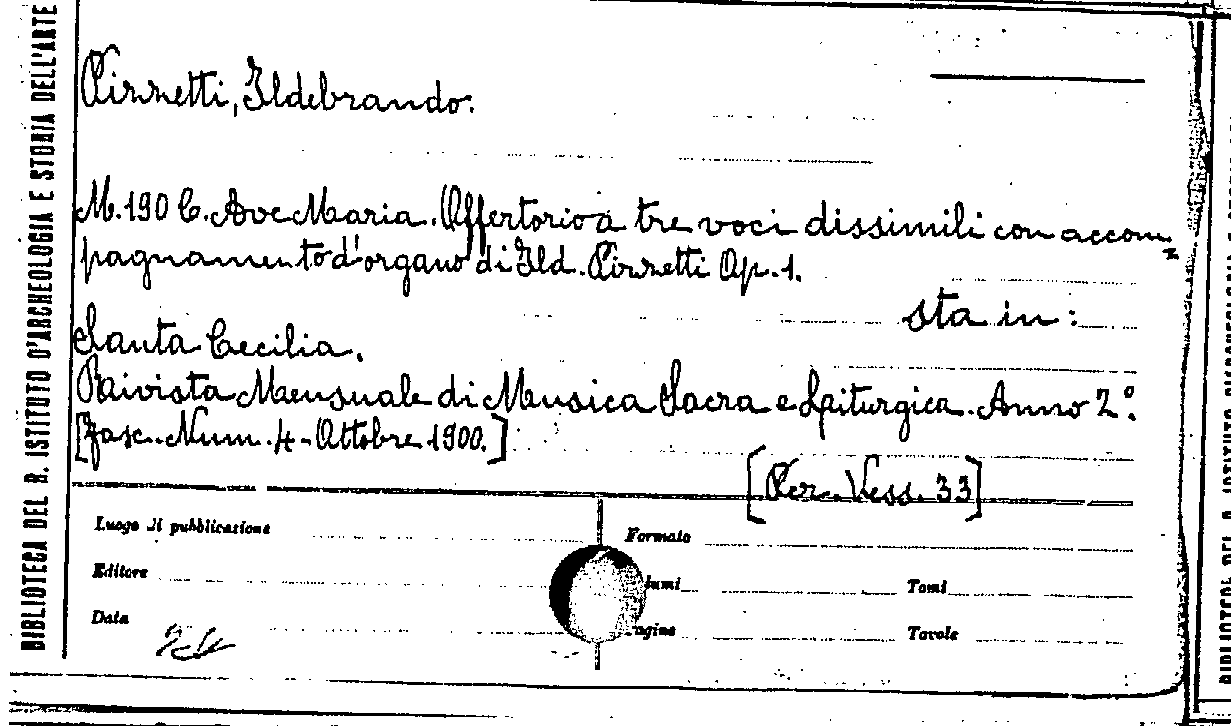 BIBLIOTECA DEL R. ISTITUTO D'ARCHEOLOGIA E STORIA DELL'ARTE
Pizzetti, Ildebrando.
M. 190 C. Ave Maria. Offertorio a tre voci dissimili con accom
pagnamento d'organo di Ild. Pizzetti Op. 1.
sta in:
Santa Cecilia.
Rivista Mensuale di Musica Sacra e Liturgica. Anno 2º.
[Fasc. Num. 4 - Ottobre 1900.]
[Per. Vess. 33]
Luogo di pubblicazione
Formato
Editore
lumi
Tomi
Data
agine
Tavole